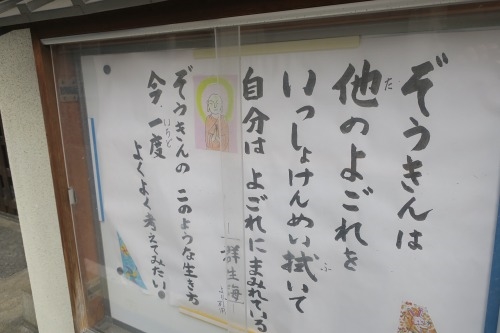 ぞうきんは
他のよごれを
た
いっしょけんめい拭いて
ふ
自分は よごれにまみれている
群生海
ぞうきんの このような生き方
今、一度
いちど
よくよく考えてみたい